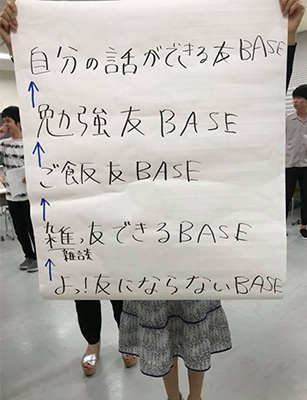 自分の話ができる友BASE
↑
勉強友BASE
↑
ご飯友BASE
↑
雑っ友できるBASE
雑談
↑
よっ!友にならないBASE